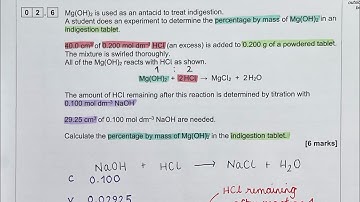 02.6 Mg(OH)₂ is used as an antacid to treat indigestion.
A student does an experiment to determine the percentage by mass of Mg(OH)₂ in an
indigestion tablet.
40.0 cm³ of 0.200 mol dm⁻³ HCl (an excess) is added to 0.200 g of a powdered tablet.
The mixture is swirled thoroughly.
All of the Mg(OH)₂ reacts with HCl as shown.
1 : 2
Mg(OH)₂ + 2HCl → MgCl₂ + 2H₂O
The amount of HCl remaining after this reaction is determined by titration with
0.100 mol dm⁻³ NaOH
29.25 cm³ of 0.100 mol dm⁻³ NaOH are needed.
Calculate the percentage by mass of Mg(OH)₂ in the indigestion tablet.
[6 marks]
NaOH + HCl → NaCl + H₂O
C 0.100
HCl remaining
V 0.02925